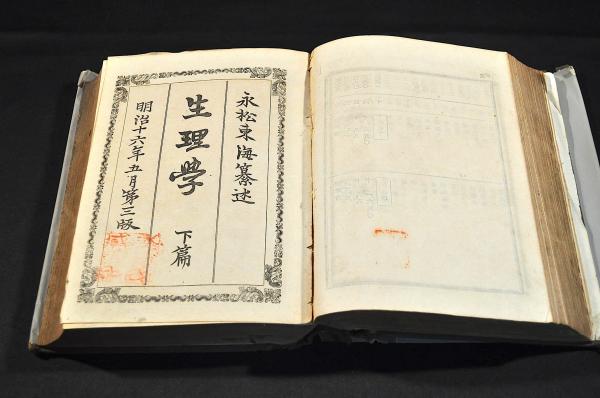 永松東海纂述
生理學 下篇
明治十六年五月第三版